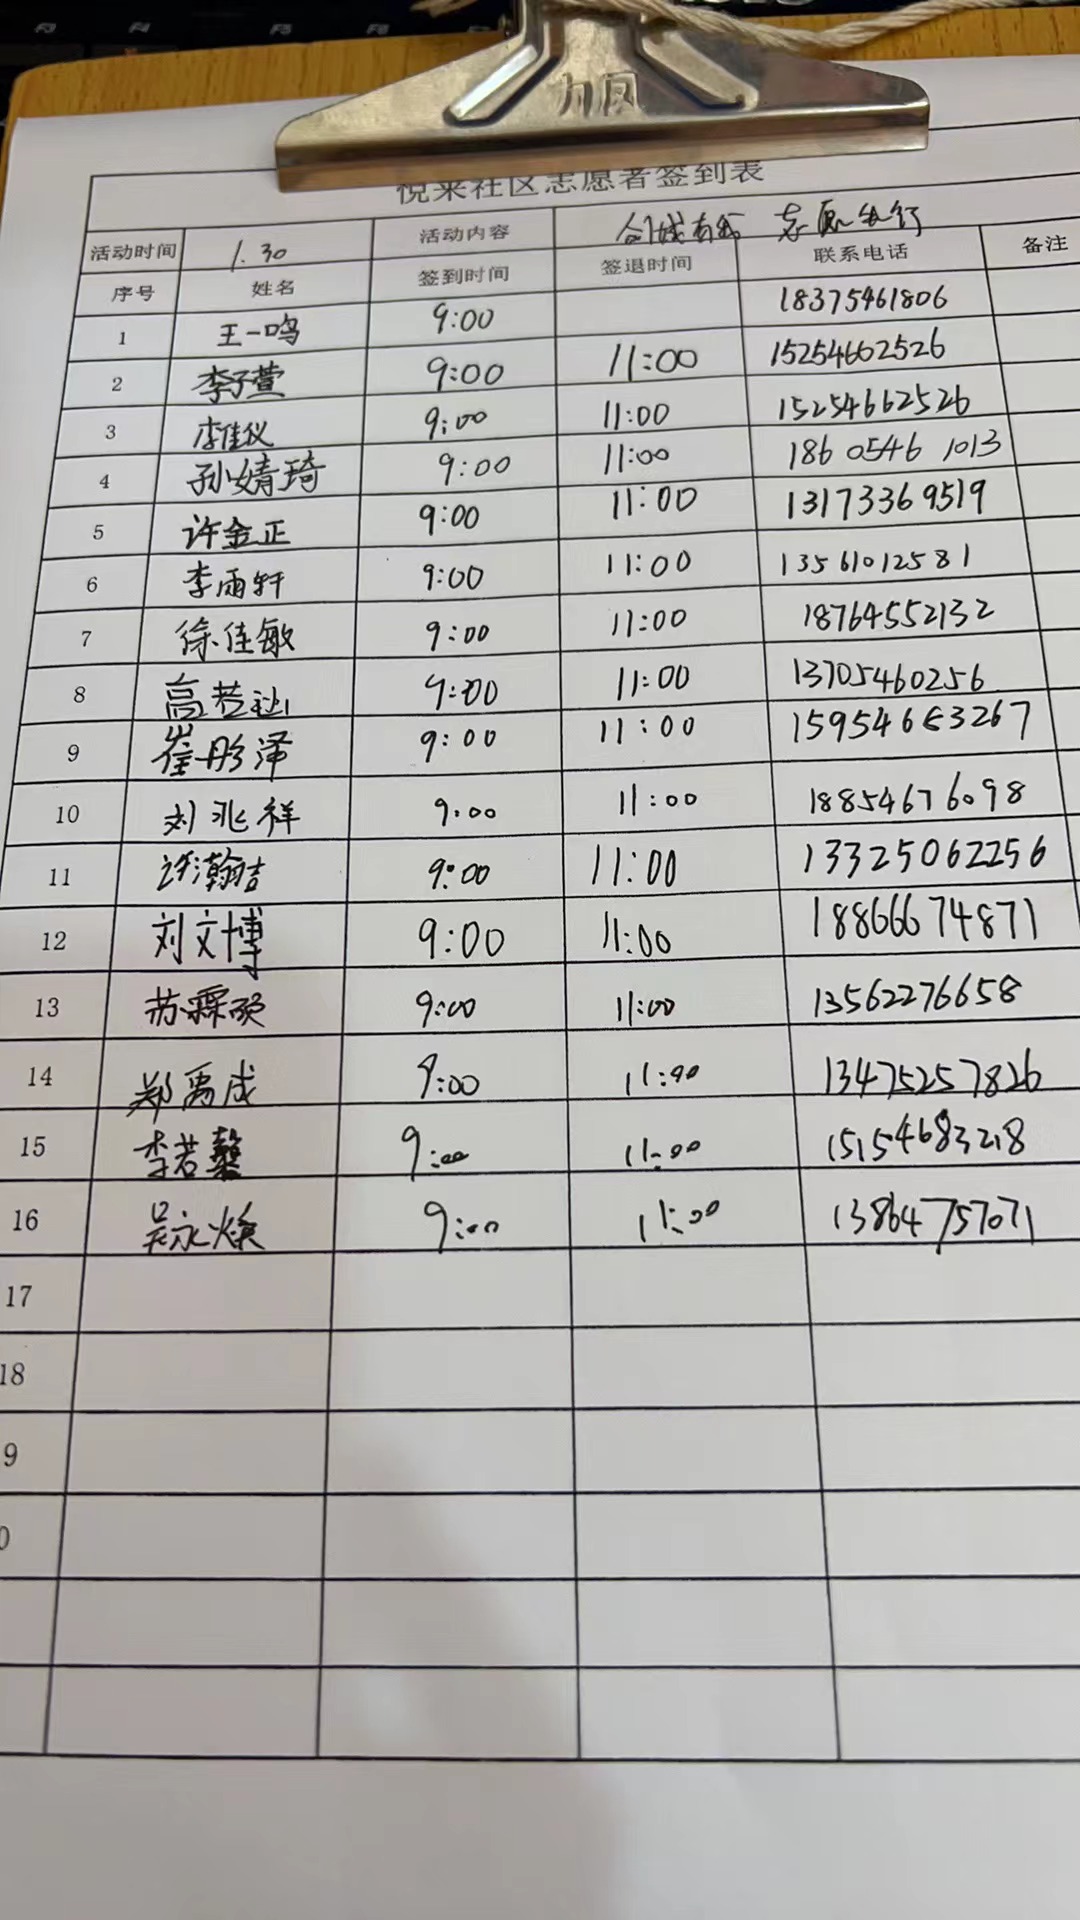 F3 F4 F5 F6
力风
悦来社区志愿者签到表
活动时间 1.30 活动内容 创城有我 志愿先行
序号 姓名 签到时间 签退时间 联系电话 备注
1 王一鸣 9:00 18375461806
2 李子萱 9:00 11:00 15254602526
3 李佳仪 9:00 11:00 15254662526
4 孙婧琦 9:00 11:00 186 0546 1013
5 许金正 9:00 11:00 13173369519
6 李雨轩 9:00 11:00 13561012581
7 徐佳敏 9:00 11:00 18764552132
8 高若 9:00 11:00 13705460256
9 崔彤泽 9:00 11:00
10 刘兆祥 9:00 11:00 18854676098
11 瀚吉 9:00 11:00 13325062256
12 刘文博 9:00 11:00 18866674871
13 苏霖硕 9:00 11:00 13562276658
14 郑禹成 9:00 11:00 13475257826
15 李若馨 9:00 11:00 15154683218
16 吴永焕 9:00 11:00 13864757071
17
18
9
0